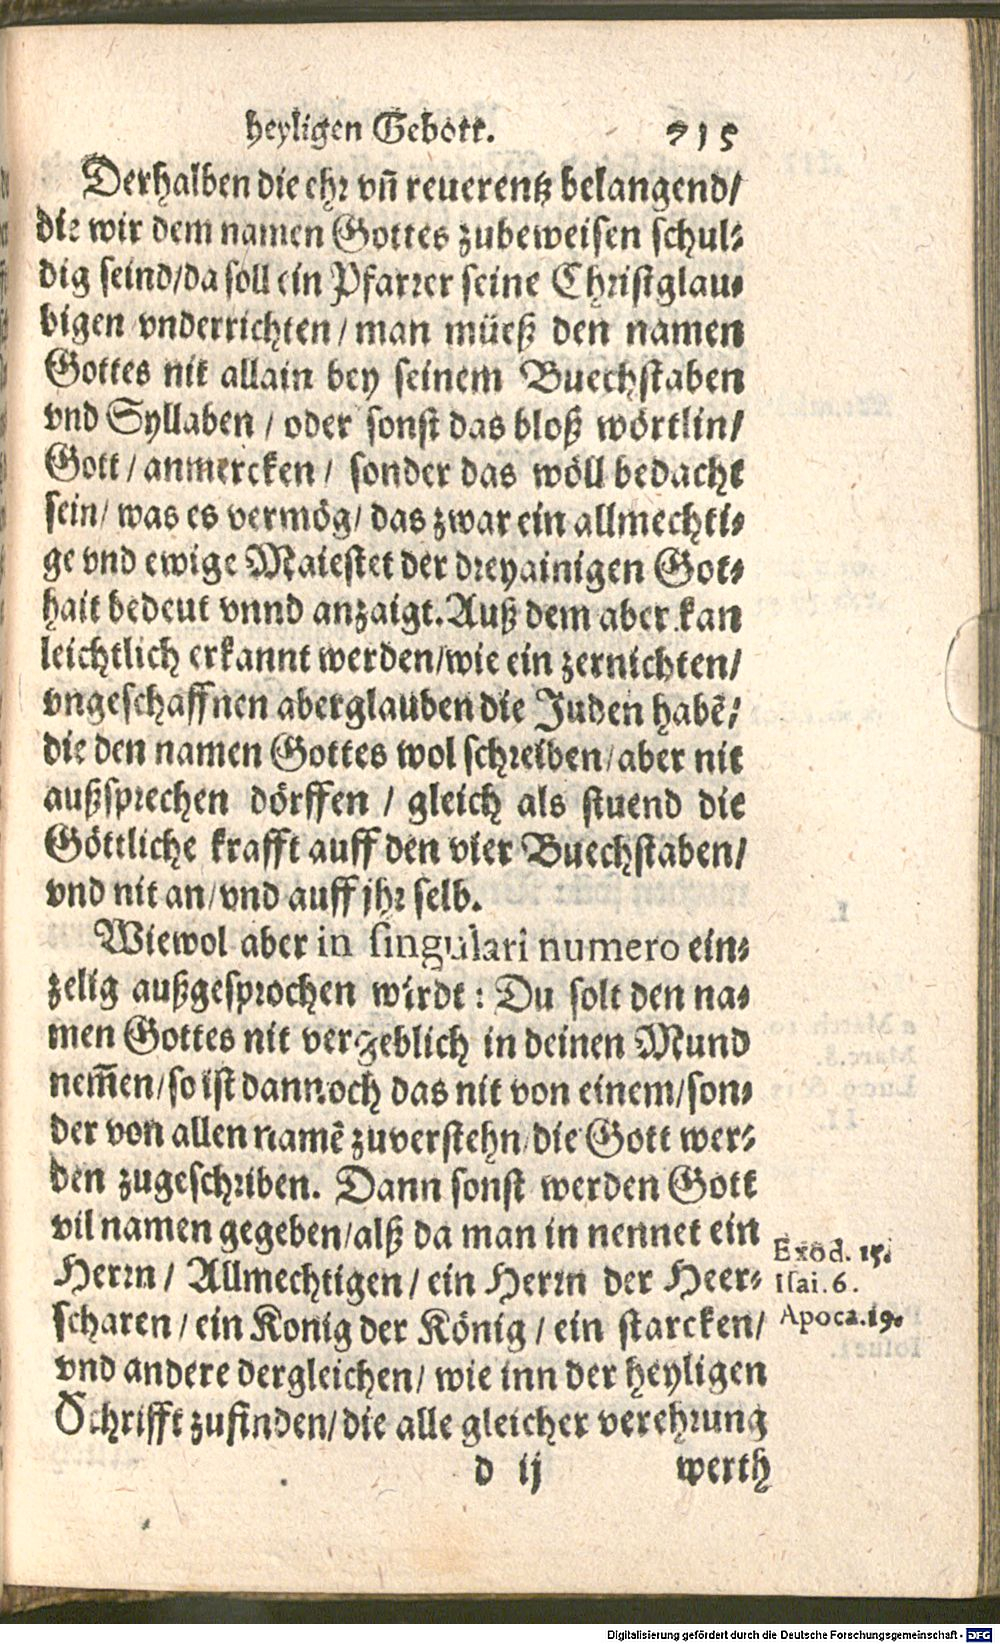 heyligen Gebott. 715
Derhalben die ehr vñ reuerentz belangend/
die wir dem namen Gottes zubeweisen schul⸗
dig seind/da soll ein Pfarrer seine Christglau⸗
bigen vnderrichten/ man müeß den namen
Gottes nit allain bey seinem Buechstaben
vnd Syllaben / oder sonst das bloß wörtlin/
Gott / anmercken / sonder das wöll bedacht
sein/ was es vermög/ das zwar ein allmechti⸗
ge vnd ewige Maiestet der dreyainigen Got⸗
hait bedeut vnnd anzaigt. Auß dem aber kan
leichtlich erkannt werden/wie ein zernichten/
vngeschaffnen aberglauben die Juden habẽ/
die den namen Gottes wol schreiben/aber nit
außsprechen dörffen / gleich als stuend die
Göttliche krafft auff den vier Buechstaben/
vnd nit an/vnd auff jhr selb.
Wiewol aber in singulari numero ein⸗
zelig außgesprochen wirdt: Du solt den na⸗
men Gottes nit vergeblich in deinen Mund
nem̃en/so ist dannoch das nit von einem/son⸗
der von allen namẽ zuverstehn/die Gott wer⸗
den zugeschriben. Dann sonst werden Gott
vil namen gegeben/alß da man in nennet ein
Herrn/ Allmechtigen / ein Herrn der Heer⸗
scharen / ein Konig der König / ein starcken/
vnd andere dergleichen/ wie inn der heyligen
Schrifft zufinden/die alle gleicher verehrung
Exod. 15.
Isai. 6.
Apoca. 19.
d ij werth
Digitalisierung gefördert durch die Deutsche Forschungsgemeinschaft - DFG